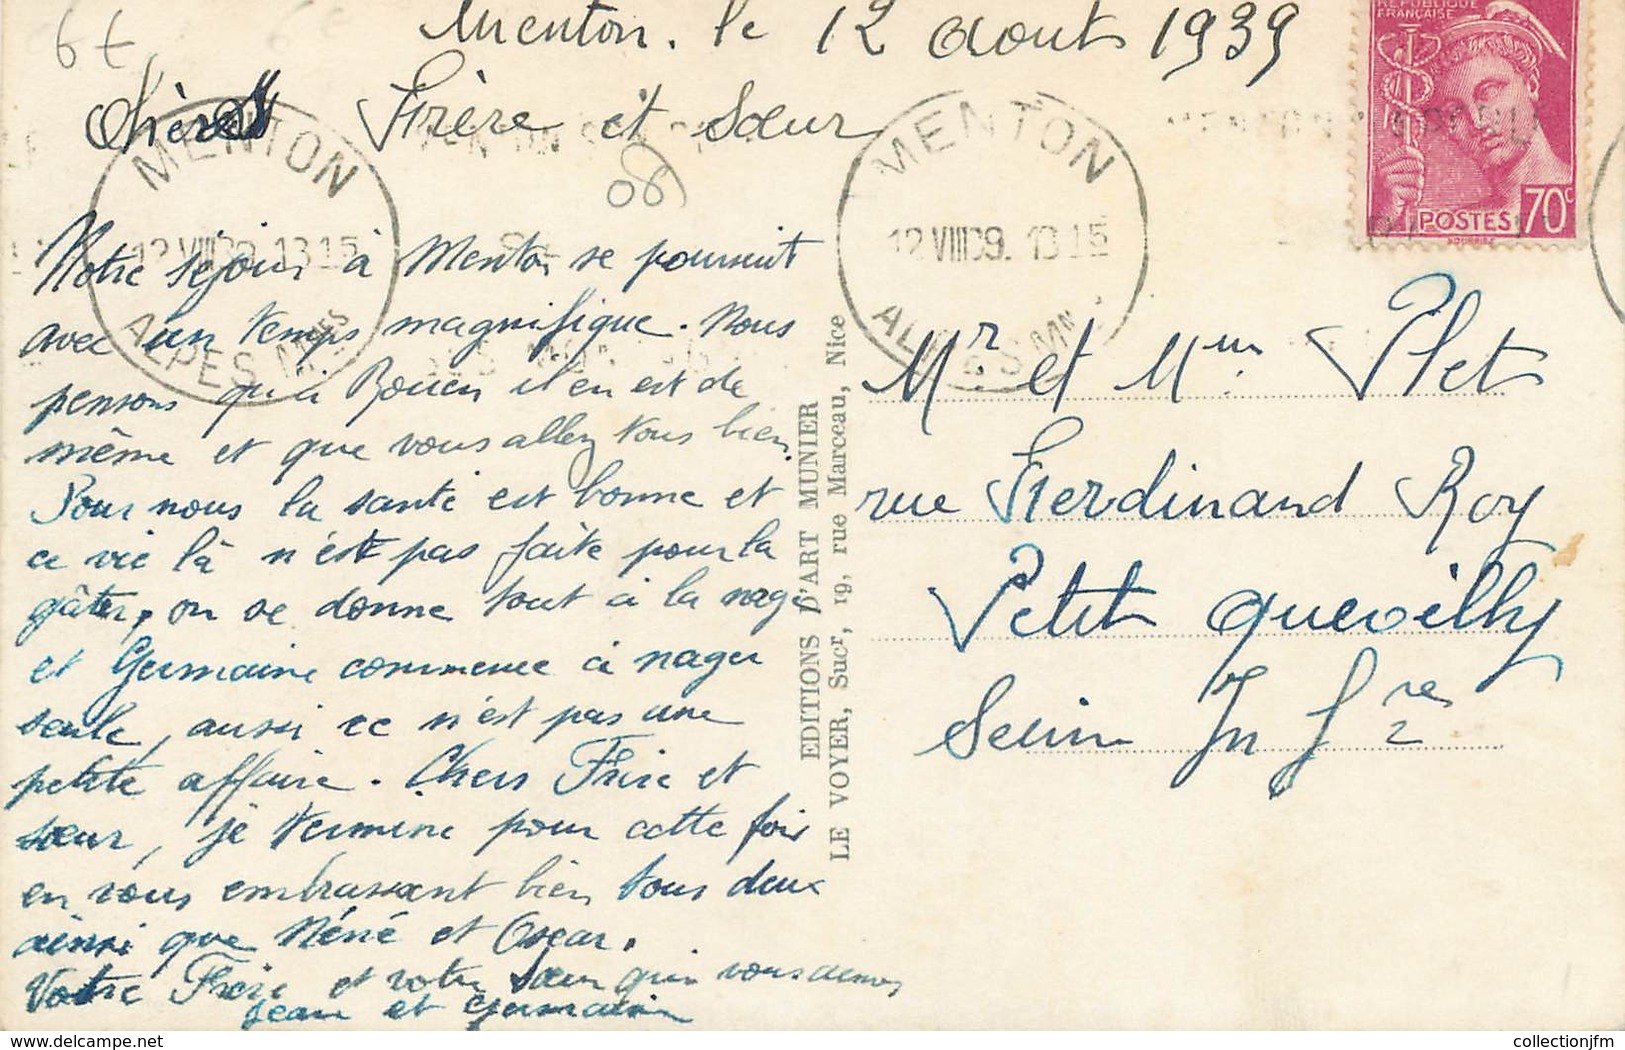 6f
Menton. le 12 août 1939
Chers Frère et Sœur
Notre séjour à Menton se poursuit
avec un temps magnifique. Nous
pensons qu'à Rouen il en est de
même et que vous allez tous bien.
Pour nous la santé est bonne et
ce vie là n'est pas faite pour la
gâter, on se donne tout à la nage
et Germaine commence à nager
seule, aussi ce n'est pas une
petite affaire. Chers Frère et
sœur, je termine pour cette fois
en vous embrassant bien tous deux
ainsi que Néné et Oscar.
Votre Frère et votre Sœur qui vous aiment
Jean et Germaine
80
MENTON
12 VIII 39. 13 15
ALPES MMES
MENTON
12 VIII 39. 13 15
ALPES MMES
REPUBLIQUE
FRANÇAISE
POSTES 70c
EDITIONS D'ART MUNIER
LE VOYER, Sucr, 19, rue Marceau, Nice
Mr et Mme Plet
rue Ferdinand Roy
Petit Quevilly
Seine Infre
collectionjfm